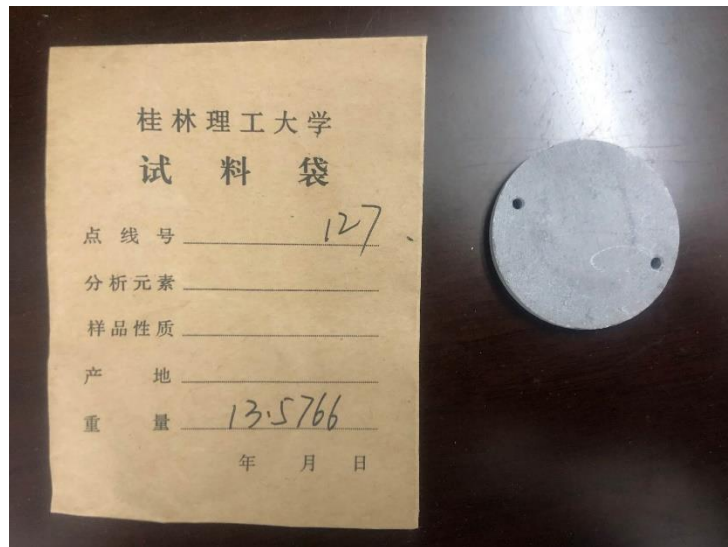 桂林理工大学
试料袋
点线号 127
分析元素
样品性质
产地
重量 13.5766
年 月 日